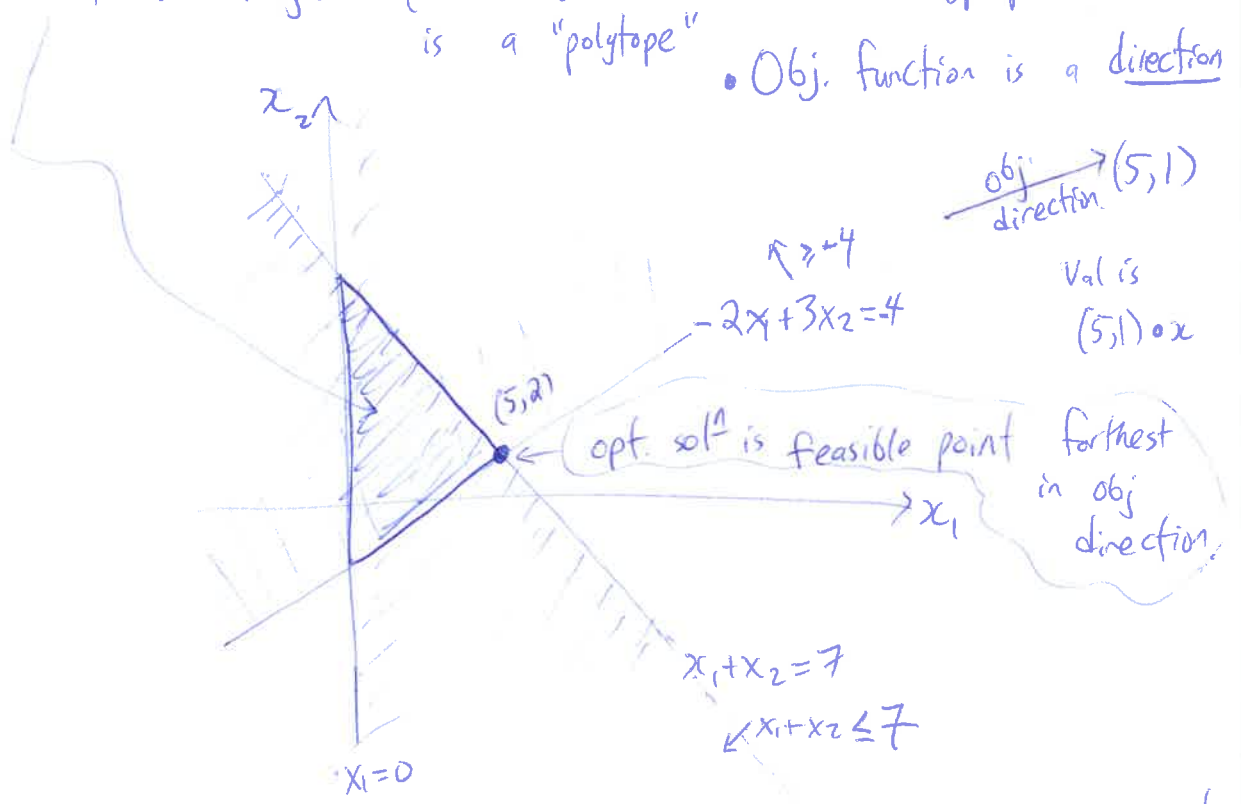 is a "polytope"
• Obj. function is a direction
x₂
obj. direction (5,1)
↖ ≥ -4
-2x₁+3x₂=-4
Val is
(5,1)•x
(5,2)
opt. solⁿ is feasible point farthest
in obj
direction.
x₁
x₁+x₂=7
↙ x₁+x₂ ≤ 7
x₁=0